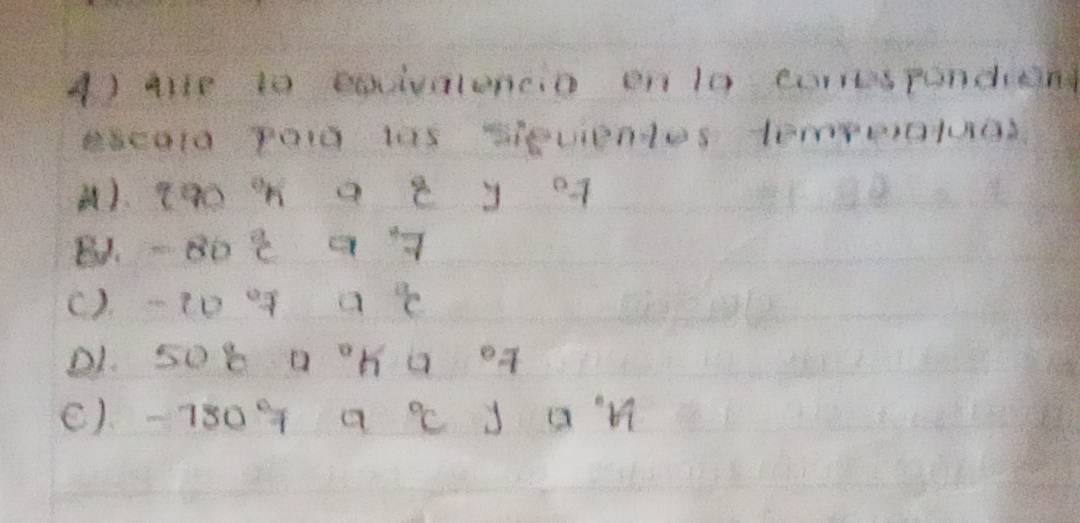 4) que la equivalencia en la correspondient
escala para las siguientes temperaturas.
A). 290 °K a °C y °F
B). -80 °C a °F
C). -20 °F a °C
D). 50 °C a °K a °F
E). -130 °F a °C y a °K